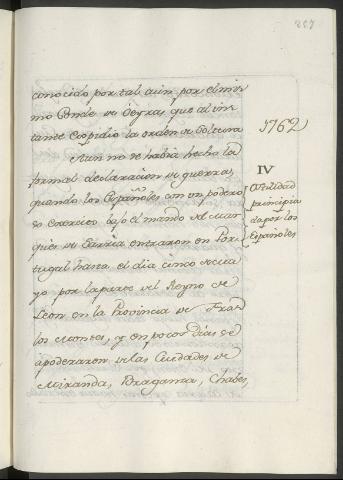 257
conocido por tal aun por el mis
mo Conde de Oeyras que al ins
tante expidio la orden de soltura
Aun no se habia hecho la
formal declaracion de guerra,
quando los Españoles con un podero
so exercito bajo el mando del Mar
ques de Sarria entraron en Por
tugal hasta el dia cinco de Ma
yo por la parte del Reyno de
Leon en la Provincia de Tras
los Montes, y en pocos dias se
apoderaron de las Ciudades de
Miranda, Braganza, Chabes,
1762
IV
Ostilidad
principia
da por los
Españoles